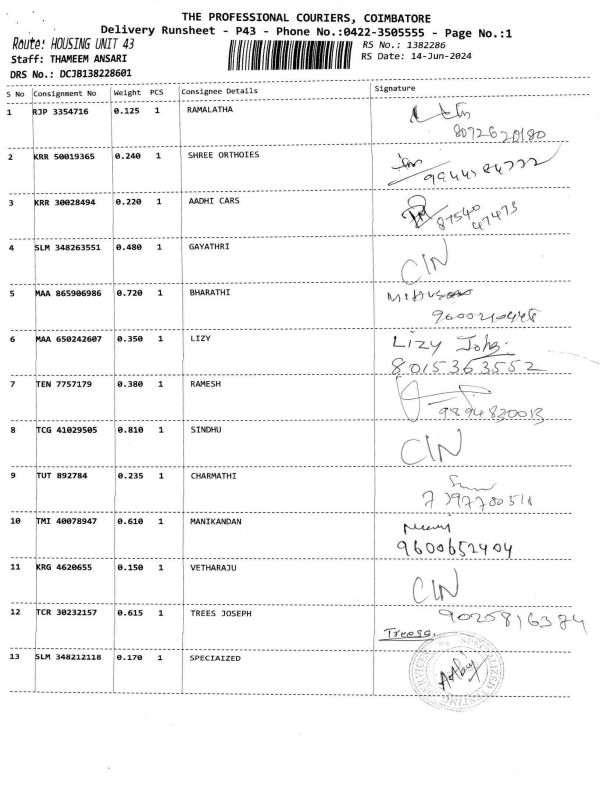 THE PROFESSIONAL COURIERS, COIMBATORE
Delivery Runsheet - P43 - Phone No.:0422-3505555 - Page No.:1
Route: HOUSING UNIT 43
RS No.: 1382286
Staff: THAMEEM ANSARI
RS Date: 14-Jun-2024
DRS No.: DCJB138228601
S No Consignment No Weight PCS Consignee Details Signature
1 RJP 3354716 0.125 1 RAMALATHA
8072620180
2 KRR 50019365 0.240 1 SHREE ORTHOIES
3 KRR 30028494 0.220 1 AADHI CARS
87540
47473
4 SLM 348263551 0.480 1 GAYATHRI
CIN
5 MAA 865906986 0.720 1 BHARATHI
6 MAA 650242607 0.350 1 LIZY
Lizy John
8015363552
7 TEN 7757179 0.380 1 RAMESH
9894820013
8 TCG 41029505 0.810 1 SINDHU
CIN
9 TUT 892784 0.235 1 CHARMATHI
10 TMI 40078947 0.610 1 MANIKANDAN
9600652404
11 KRG 4620655 0.150 1 VETHARAJU
CIN
12 TCR 30232157 0.615 1 TREES JOSEPH
9025816384
Treesa.
13 SLM 348212118 0.170 1 SPECIAIZED
SPECIALIZED TESTING SERVICES